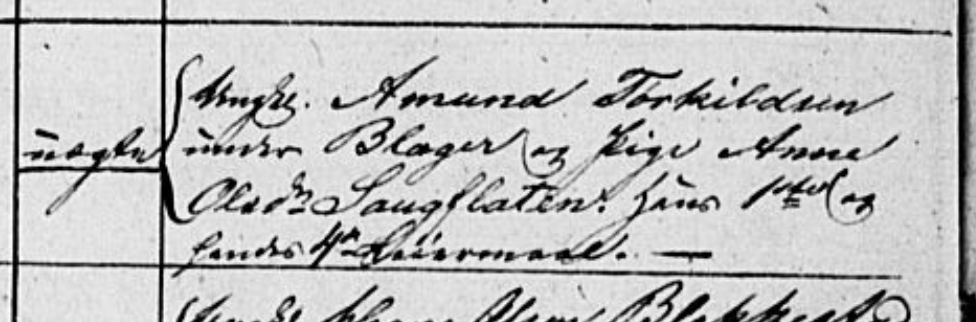 Ungk. Amund Torkildsen
uægte under Blager og Pige Anne
Olsdr. Saugflaten. Hans 1ste og
hendes 4de Leiermaal. —